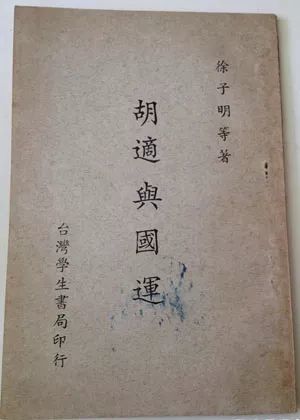 徐子明等著
胡適與國運
台灣學生書局印行